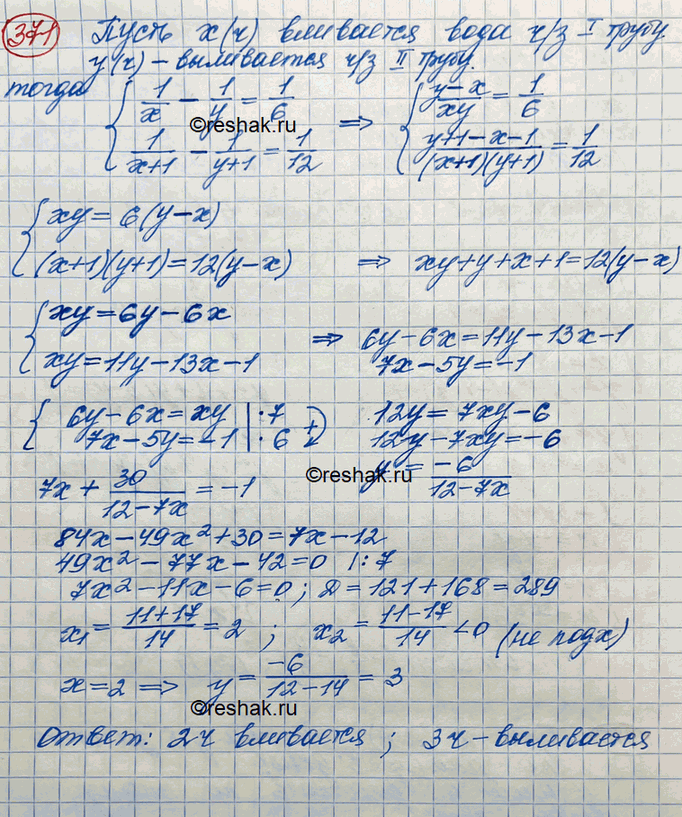 371 Пусть x(ч) вливается вода ч/з I трубу
y(ч) - выливается ч/з II трубу.
тогда { 1/x - 1/y = 1/6 => { (y-x)/xy = 1/6
©reshak.ru
1/(x+1) - 1/(y+1) = 1/12 (y+1-x-1)/((x+1)(y+1)) = 1/12
{ xy = 6(y-x)
(x+1)(y+1) = 12(y-x) => xy+y+x+1=12(y-x)
{ xy = 6y-6x
xy = 11y-13x-1 => 6y-6x=11y-13x-1
7x-5y=-1
{ 6y-6x=xy | ·7 12y=7xy-6
7x-5y=-1 | ·6 (+) 12y-7xy=-6
7x + 30/(12-7x) = -1 y = -6/(12-7x)
©reshak.ru
84x-49x²+30=7x-12
49x²-77x-42=0 |:7
7x²-11x-6=0; D=121+168=289
x₁ = (11+17)/14 = 2 ; x₂ = (11-17)/14 <0 (не подх)
x=2 => y = -6/(12-14) = 3
©reshak.ru
Ответ: 2ч вливается ; 3ч - выливается